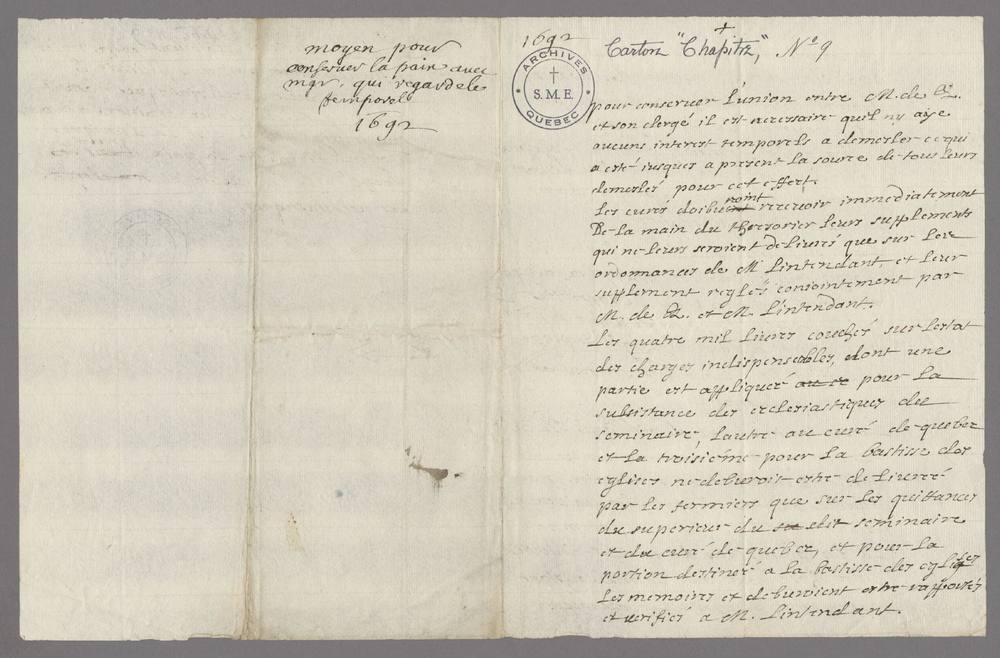 moyen pour
conserver la paix avec
mgr. qui regarde le
temporel
1692
1692
Carton "Chapitre," No 9
ARCHIVES
S. M. E.
QUEBEC
pour conserver l'union entre M. de Q.
et son clergé il est necessaire quil ny aye
aucuns interest temporels a demesler ce qui
a esté jusques a present la source de tous leurs
demeslés pour cet effect.
Les curés doibvent point recevoir immediatement
De la main du thesorier leurs supplements
qui ne leurs seroient delivrés que sur les
ordonnances de M. Lintendant, et leur
supplement reglés conjointement par
M. de Q. et M. Lintendant.
Les quatre mil livres couchés sur lestat
des charges indispensables, dont une
partie est appliqueé au ce pour la
subsistance des ecclesiastiques du
seminaire, lautre au curé de quebec
et la troisiéme pour la bastisse des
eglises ne debvroit estre delivreé
par les fermiers que sur les quittances
du superieur du dit seminaire
et du curé de quebec, et pour la
portion destineé a la bastisse des eglises
les memoires et debvroient estre rapportés
et verifiés a M. Lintendant.